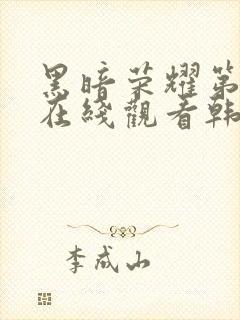 黑暗荣耀第
在綫觀看韩
李成山